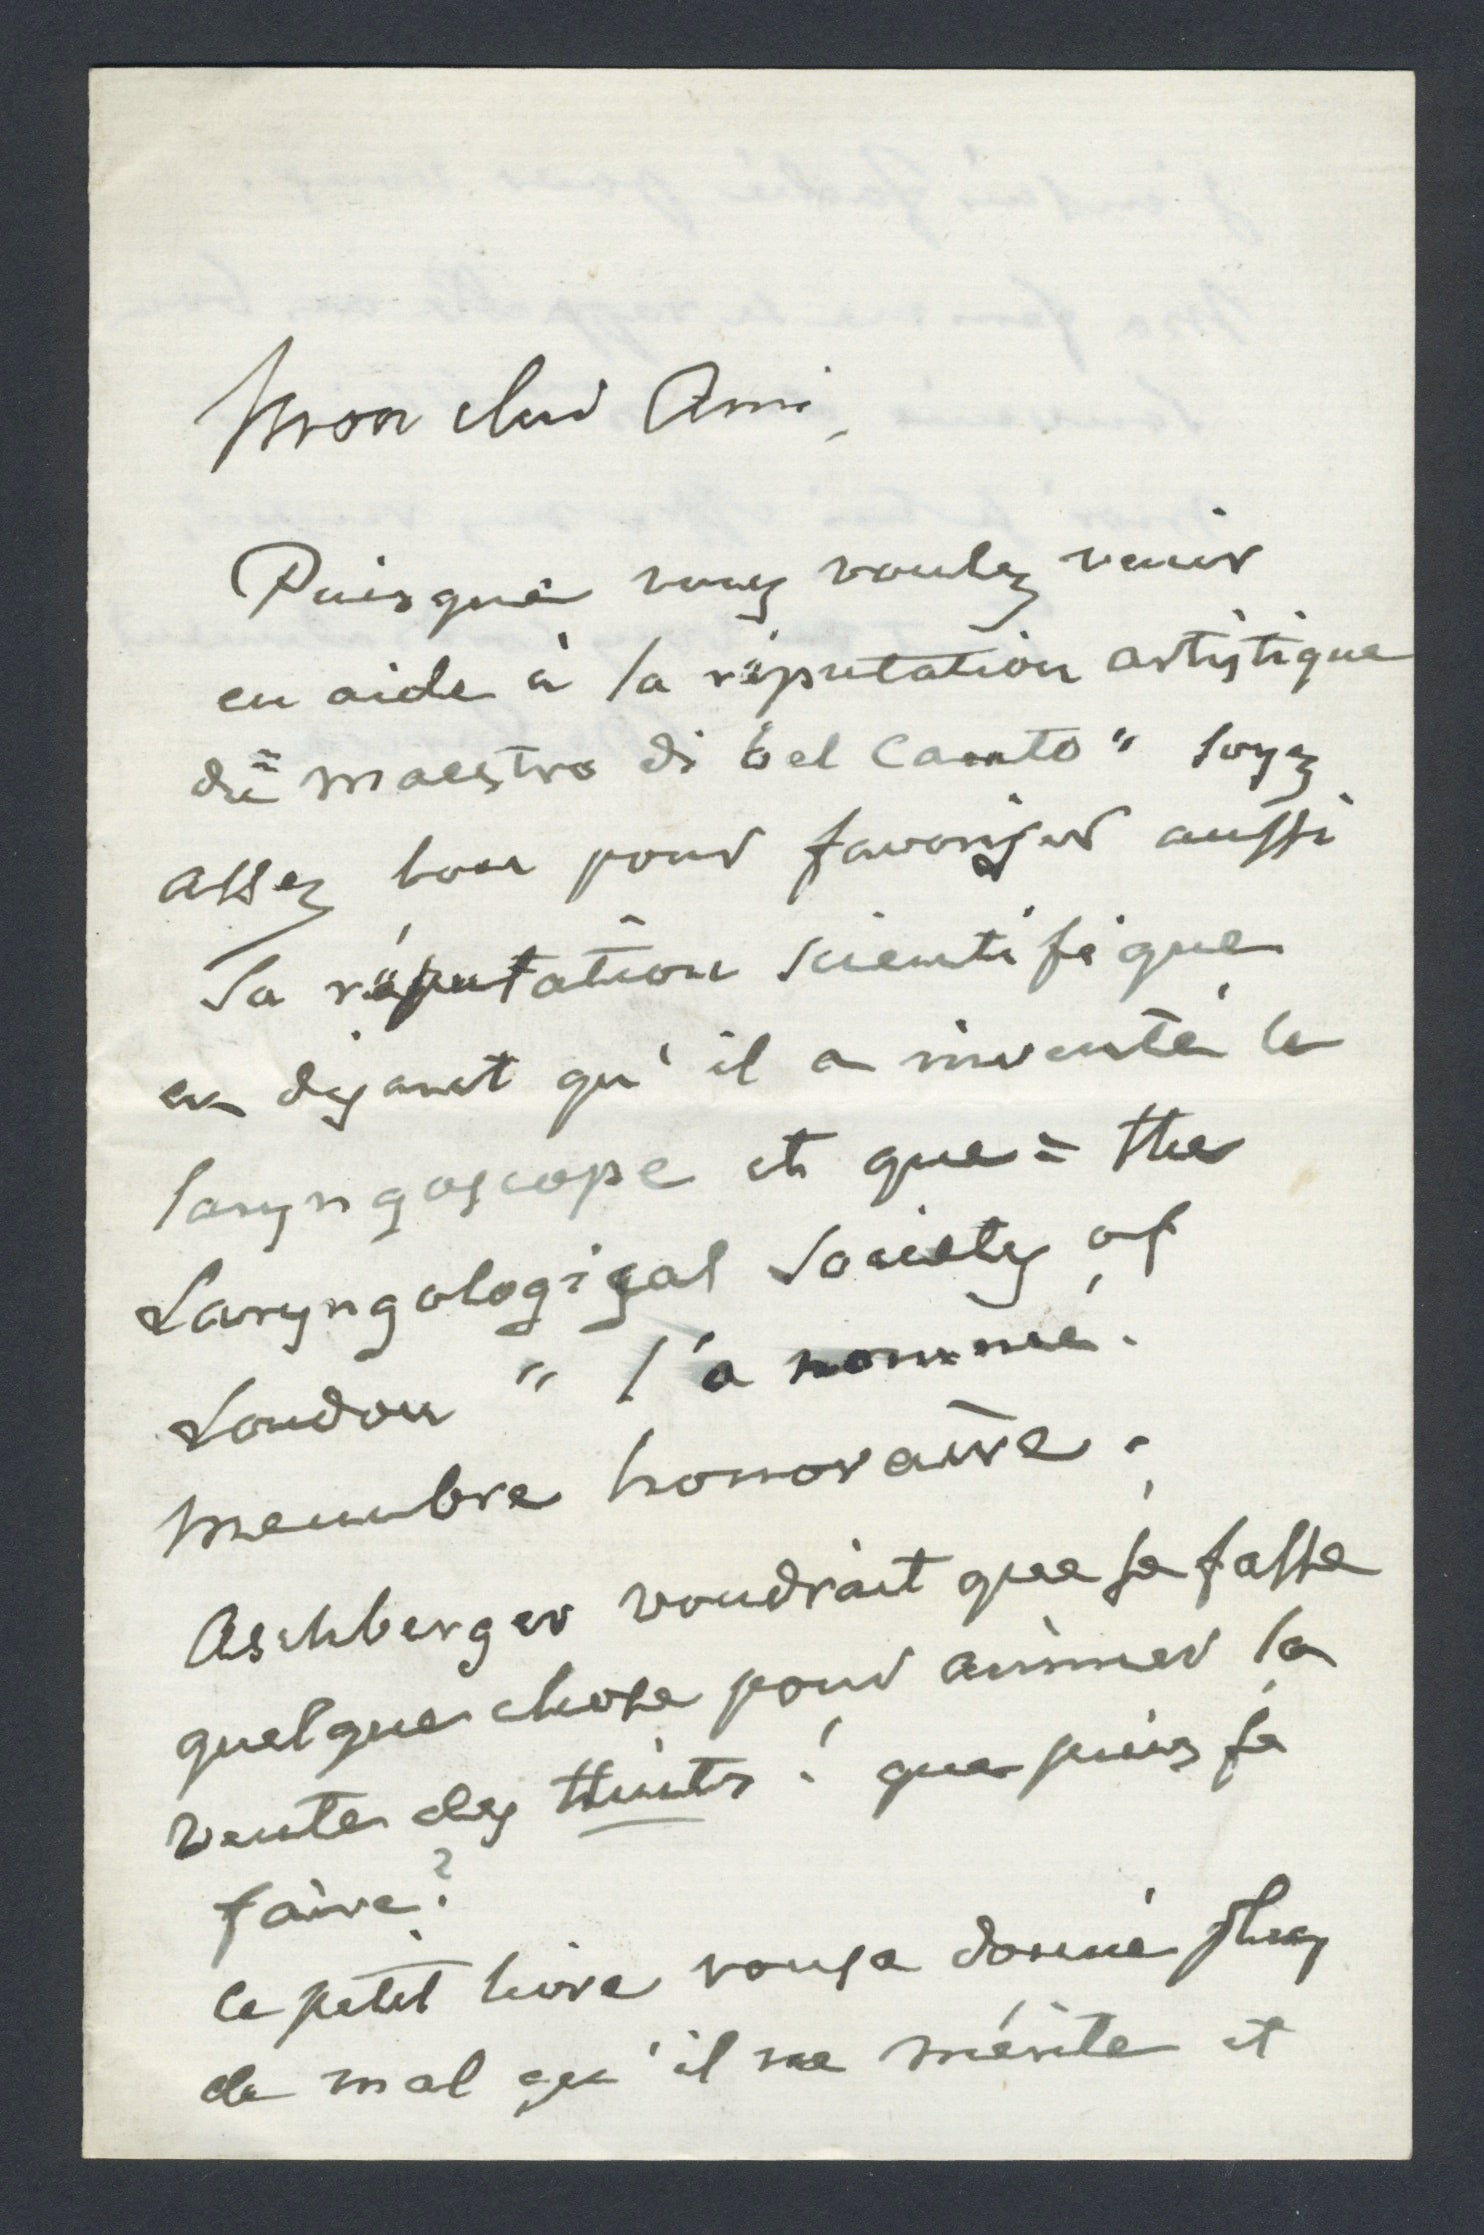 Mon cher Ami,
Puisque vous voulez venir
en aide à la réputation artistique
du "maestro di bel Canto" soyez
assez bon pour favoriser aussi
Sa réputation scientifique
en disant qu'il a inventé le
laryngoscope et que = the
Laryngological Society of
London " l'a nommé
membre honoraire.
Aschberger voudrait que je fasse
quelque chose pour animer la
vente des Hints! que puis je
faire?
Ce petit livre vous a donné plus
de mal qu'il ne mérite et